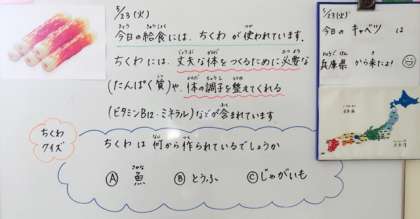 5/23(火)
今日の給食には、ちくわ が 使われています。
ちくわ には、丈夫な体をつくるために必要な
(たんぱく質)や、体の調子を整えてくれる
(ビタミンB12・ミネラル)などが含まれています
ちくわ
クイズ
ちくわ は 何から作られているでしょうか
Ⓐ 魚 Ⓑ とうふ Ⓒ じゃがいも
5/23(火)
今日の キャベツ は
兵庫県 から来たよ!